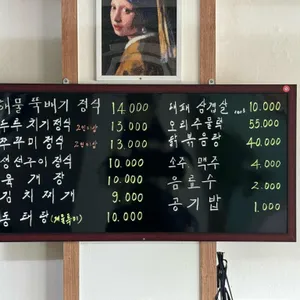 해물 뚝배기 정식 14.000
두루치기정식 2인이상 13.000
쭈꾸미정식 2인이상 13.000
생선구이 정식 10.000
육개장 10.000
김치찌개 9.000
동태탕 10.000
대패 삼겹살 10.000
오리주물럭 55.000
닭볶음탕 40.000
소주 맥주 4.000
음료수 2.000
공기밥 1.000